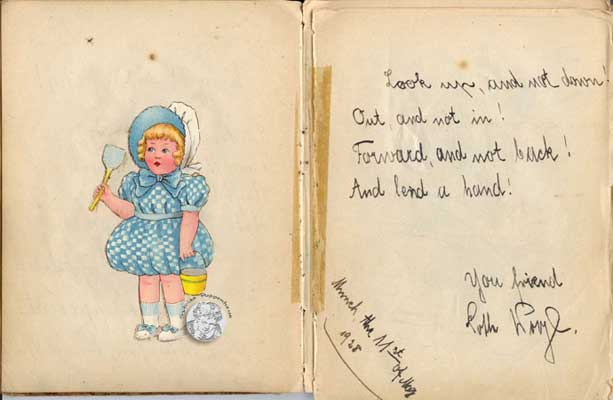 Look up, and not down!
Out, and not in!
Forward, and not back!
And lend a hand!
You friend
Ruth
Munich, the 11st of
1938